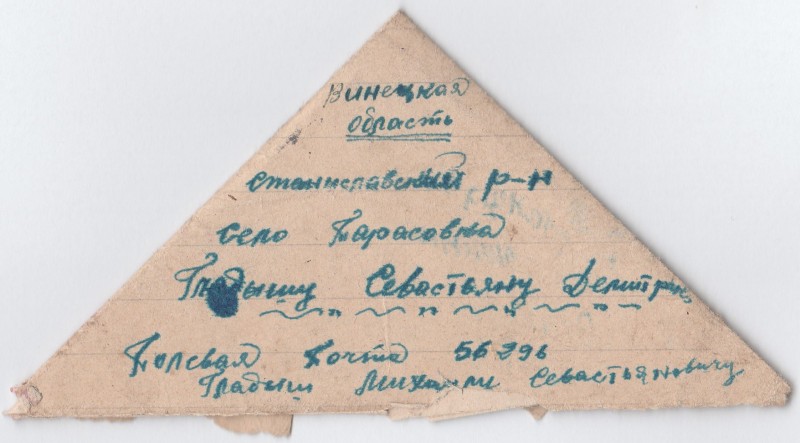 Винецкая
область
Станиславский р-н
село Тарасовка
Гладышу Севастьяну Демитрие
Полевая Почта 56296
Гладыш Михаили Севастьяновичу